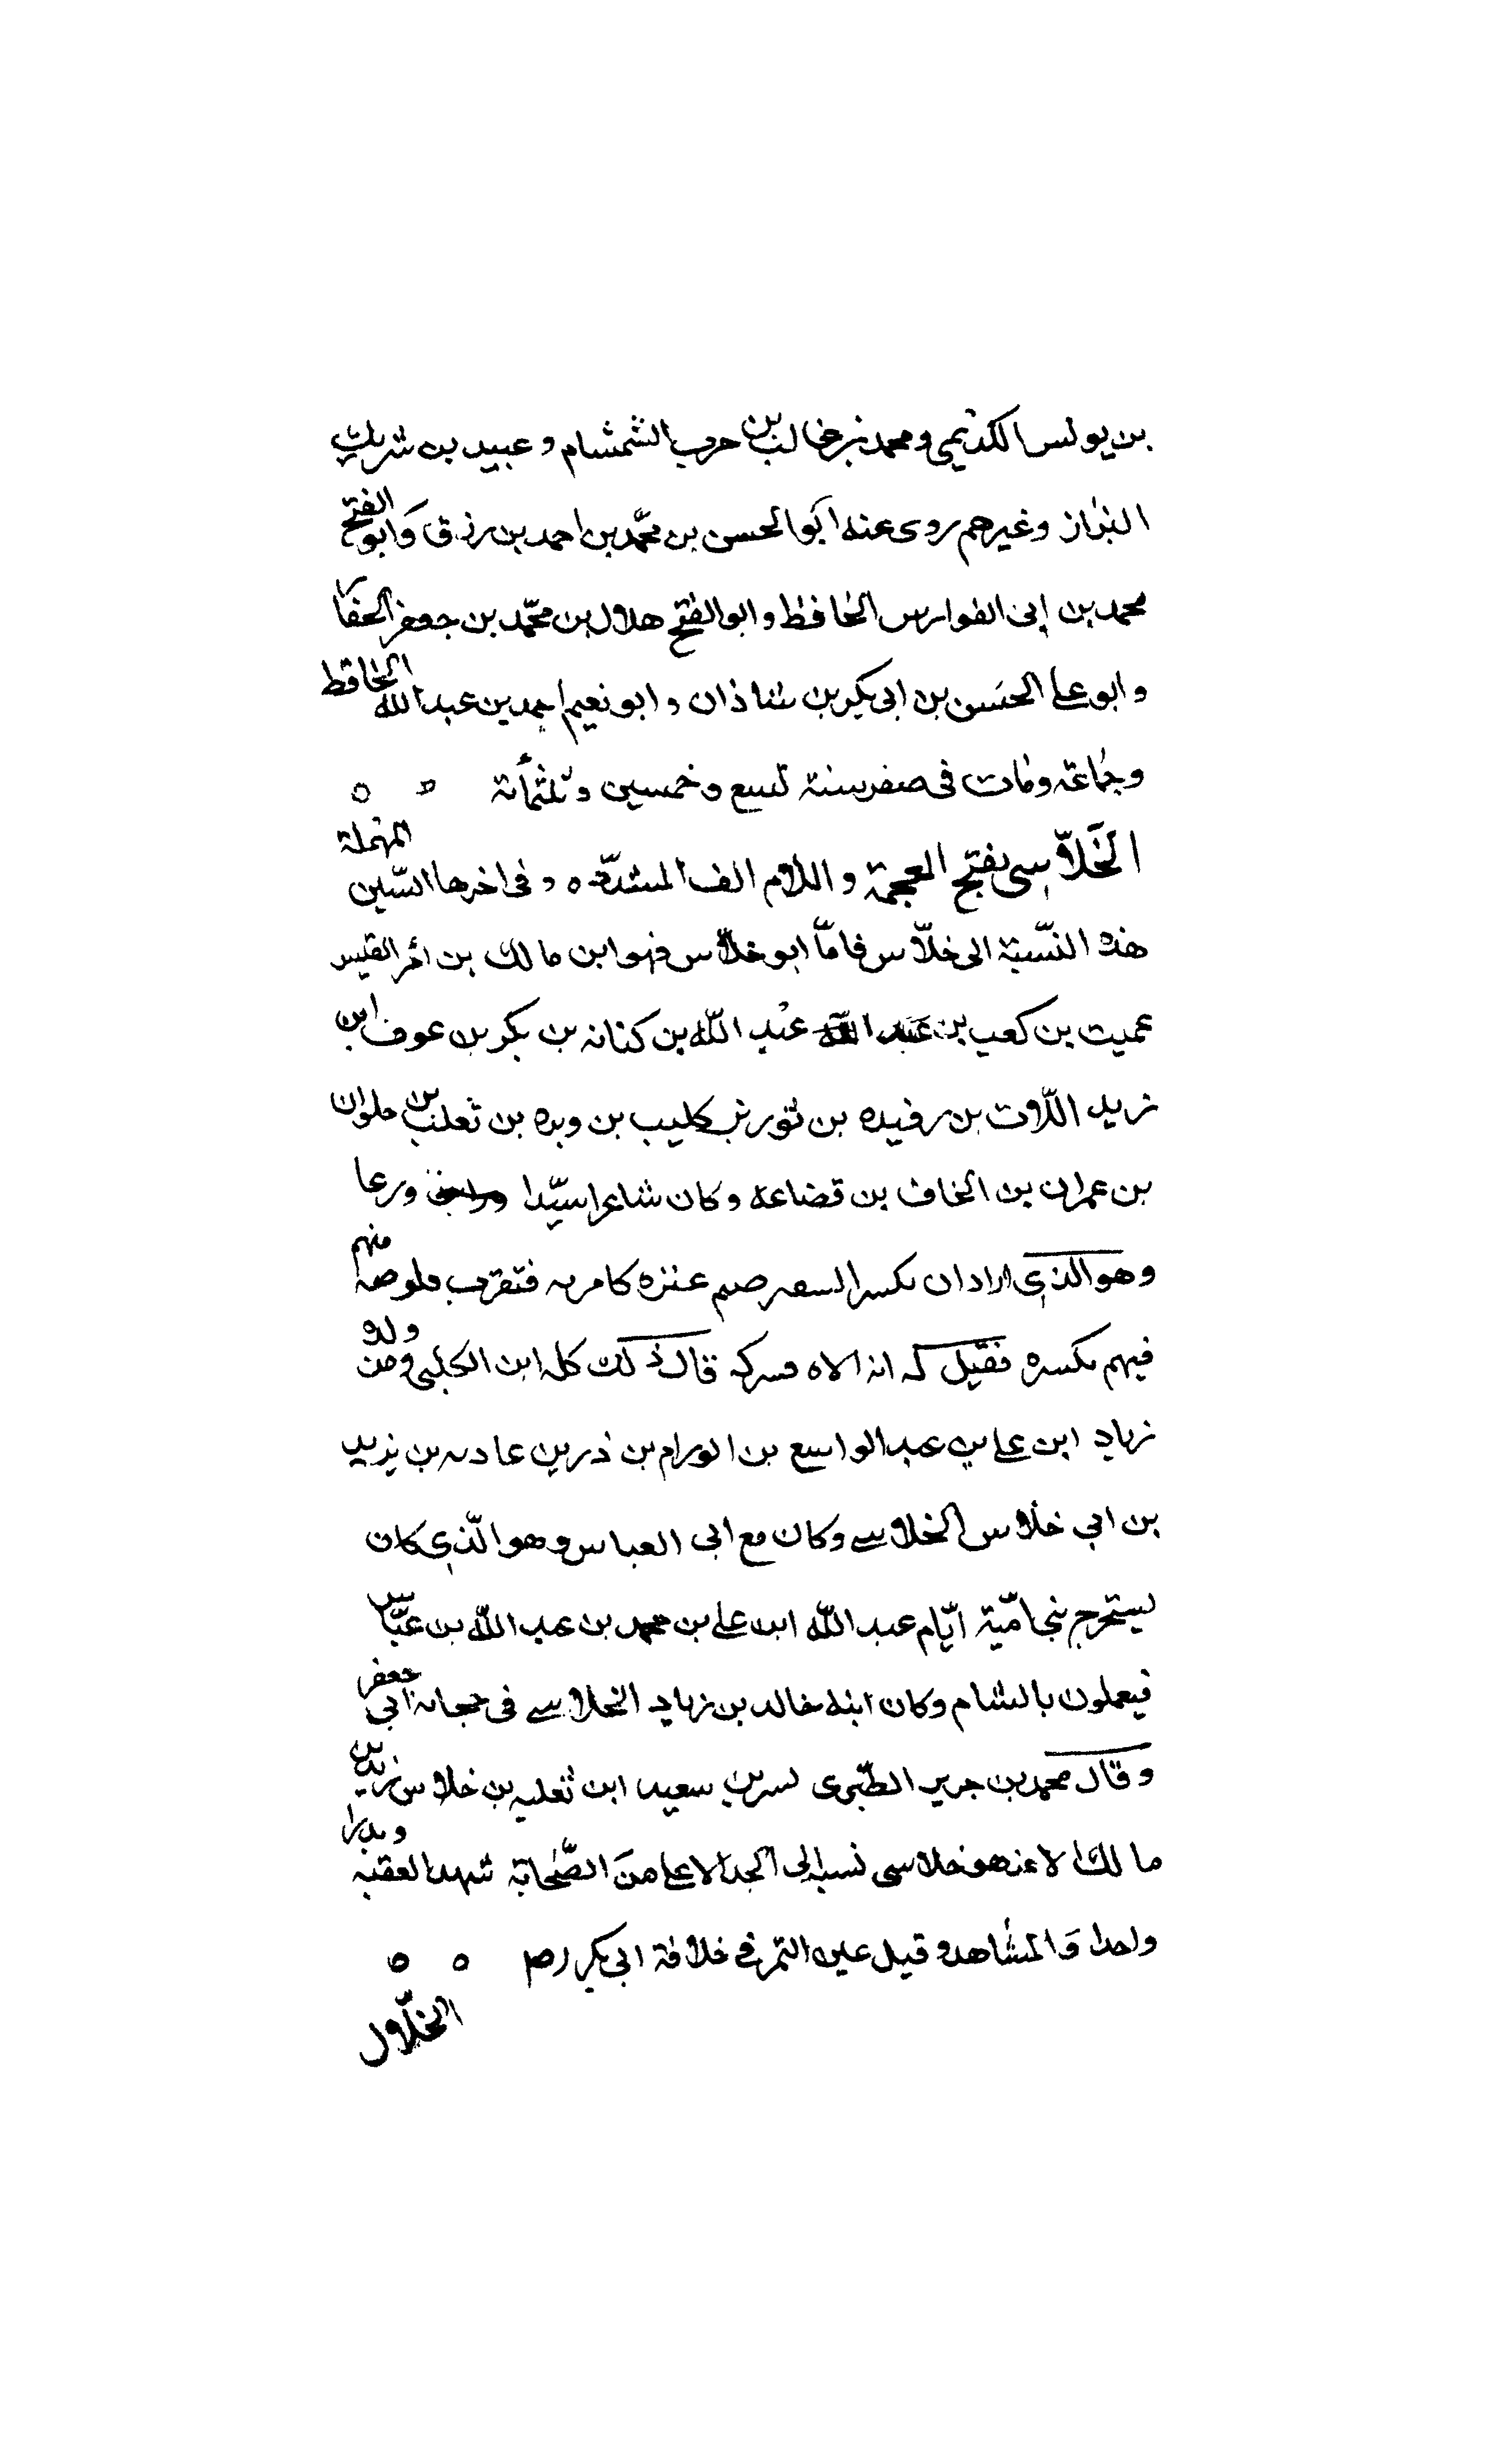 بن يونس الكديمي ومحمد بن غالب بن حرب الشمشام وعبيد بن شريك
البزاز وغيرهم روى عنه ابو الحسن بن محمّد بن احمد بن رزق وَابو الفتح
محمد بن ابى الفوارس الحافظ وابو الفتح هلال بن محمّد بن جعفر الحفار
وابو على الحسَن بن ابى بكر بن شاذان وابو نعيم احمد بن عبد الله الحافظ
وجماعة ومات فى صفر سنة تسع وخمسين وثلثمأئة ه ه
الخَلاّسى بفتح المعجمة واللام الف المشدّده وفى اخرها السّين المهملة
هذه النّسبة الى خلّاس فامّا ابو خلّاس فهو ابن مالك بن امرؤ القيس
عميت بن كعب بن عبد الله عبد اللّه بن كنانه بن بكر بن عوف ابن
زيد اللّات بن رفيده بن ثور بن كليب بن وبره بن ثعلب بن حلوان
بن عمران بن الحاف بن قضاعة وكان شاعرا سيّدا ورعا
وهو الذي اراد ان يكسر السعير صنم عنزه فتقرب منهم
فيهم يكسره فقيل له انه الاه فتركه قال ذلك كله ابن الكلبى ومن ولده
زياد ابن على بن عبد الواسع بن الورام بن ذر بن عاديه بن يزيد
بن ابي خلاس الخلاسے وكان مع ابى العباس وهو الّذي كان
يستخرج بنى اميّة ايّام عبد اللّه ابن على بن محمد بن عبد اللّه بن عبّاس
فيعملون بالشام وكان ابنه خالد بن زياد الخلاسے فى ابى جعفر
وقال محمد بن جرير الطّبرى بشير بن سعيد ابن ثعلبه بن خلاس بن زيد بن
مالك الاغر هو خلاسى نسب الى الجد الاعلى منَ الصّحابة شهد العقبة وبدرا
واحدا وَالمشاهد وقيل عين التمر فى خلافة ابى بكر رضه ه ه
الخلّال